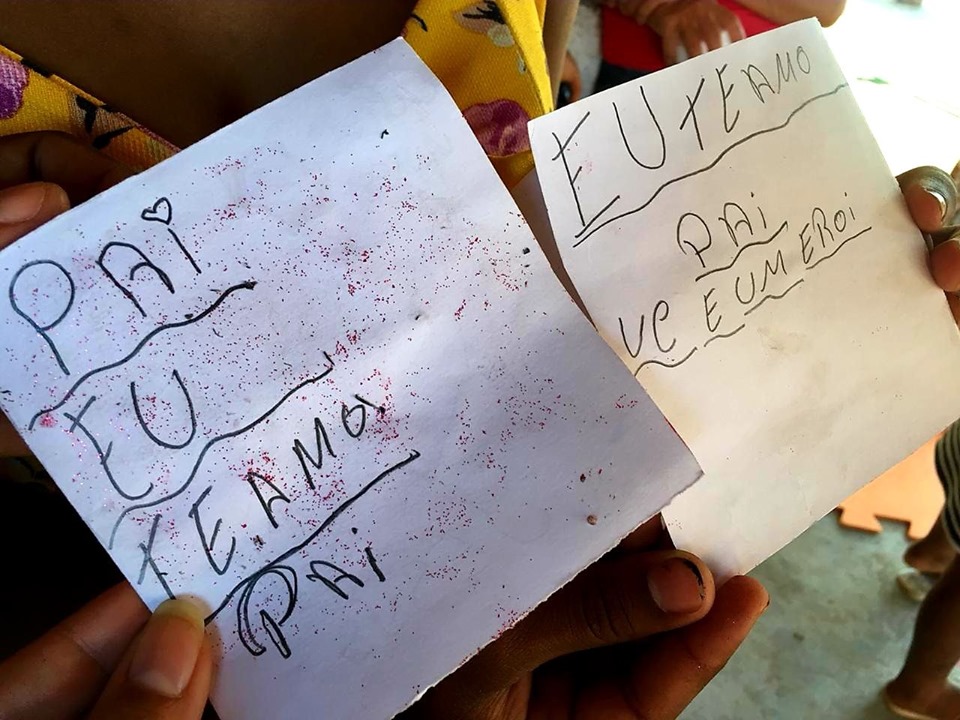 PAi
EU
TE.AMO.
PAi
EU TE AMO
PAi
VC E UM EROi